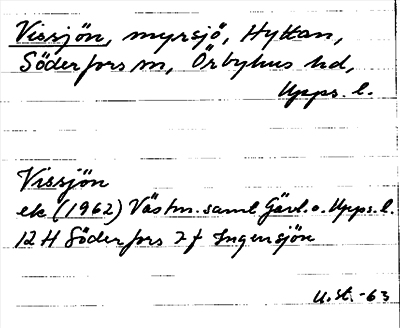 Vissjön, myrsjö, Hyttan,
Söderfors sn, Örbyhus hd,
Upps. l.
Vissjön
ek (1962) Västm. samt Gävl. o. Upps. l.
12 H Söderfors 7 f Ingersjön
U.St. -63